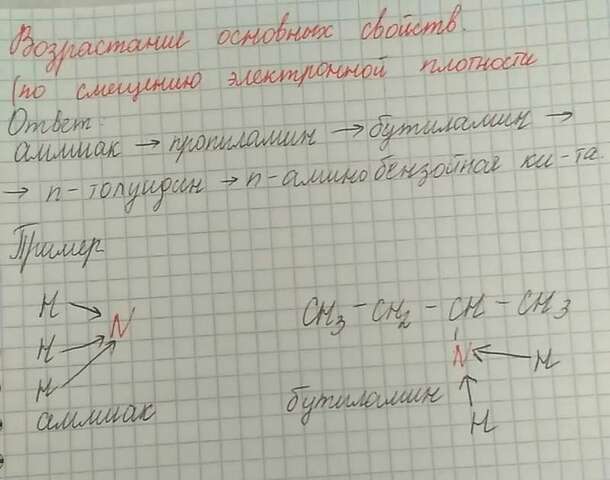 Возрастание основных свойств.
(по смещению электронной плотности
Ответ:
аммиак → пропиламин → бутиламин →
→ п-толуидин → п-аминобензойная ки-та.
Пример
H → N
H
H
аммиак
CH3 - CH2 - CH - CH3
N ← H
H
бутиламин